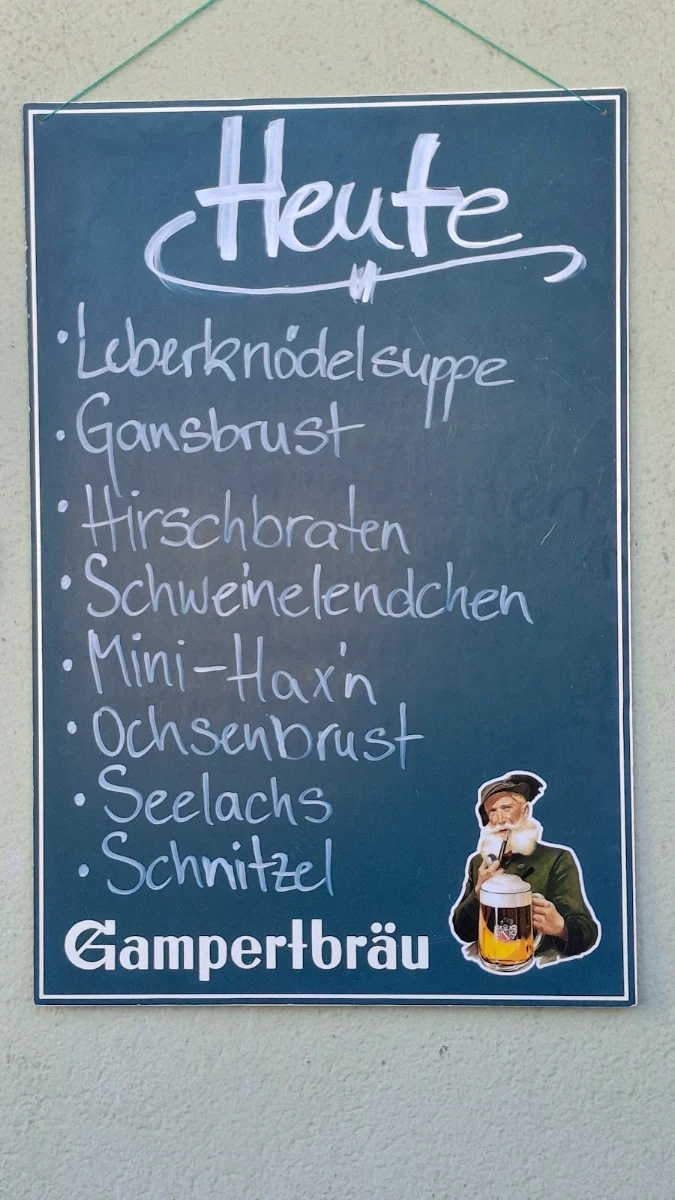 Heute
• Leberknödelsuppe
• Gansbrust
• Hirschbraten
• Schweinelendchen
• Mini-Hax'n
• Ochsenbrust
• Seelachs
• Schnitzel
Gampertbräu